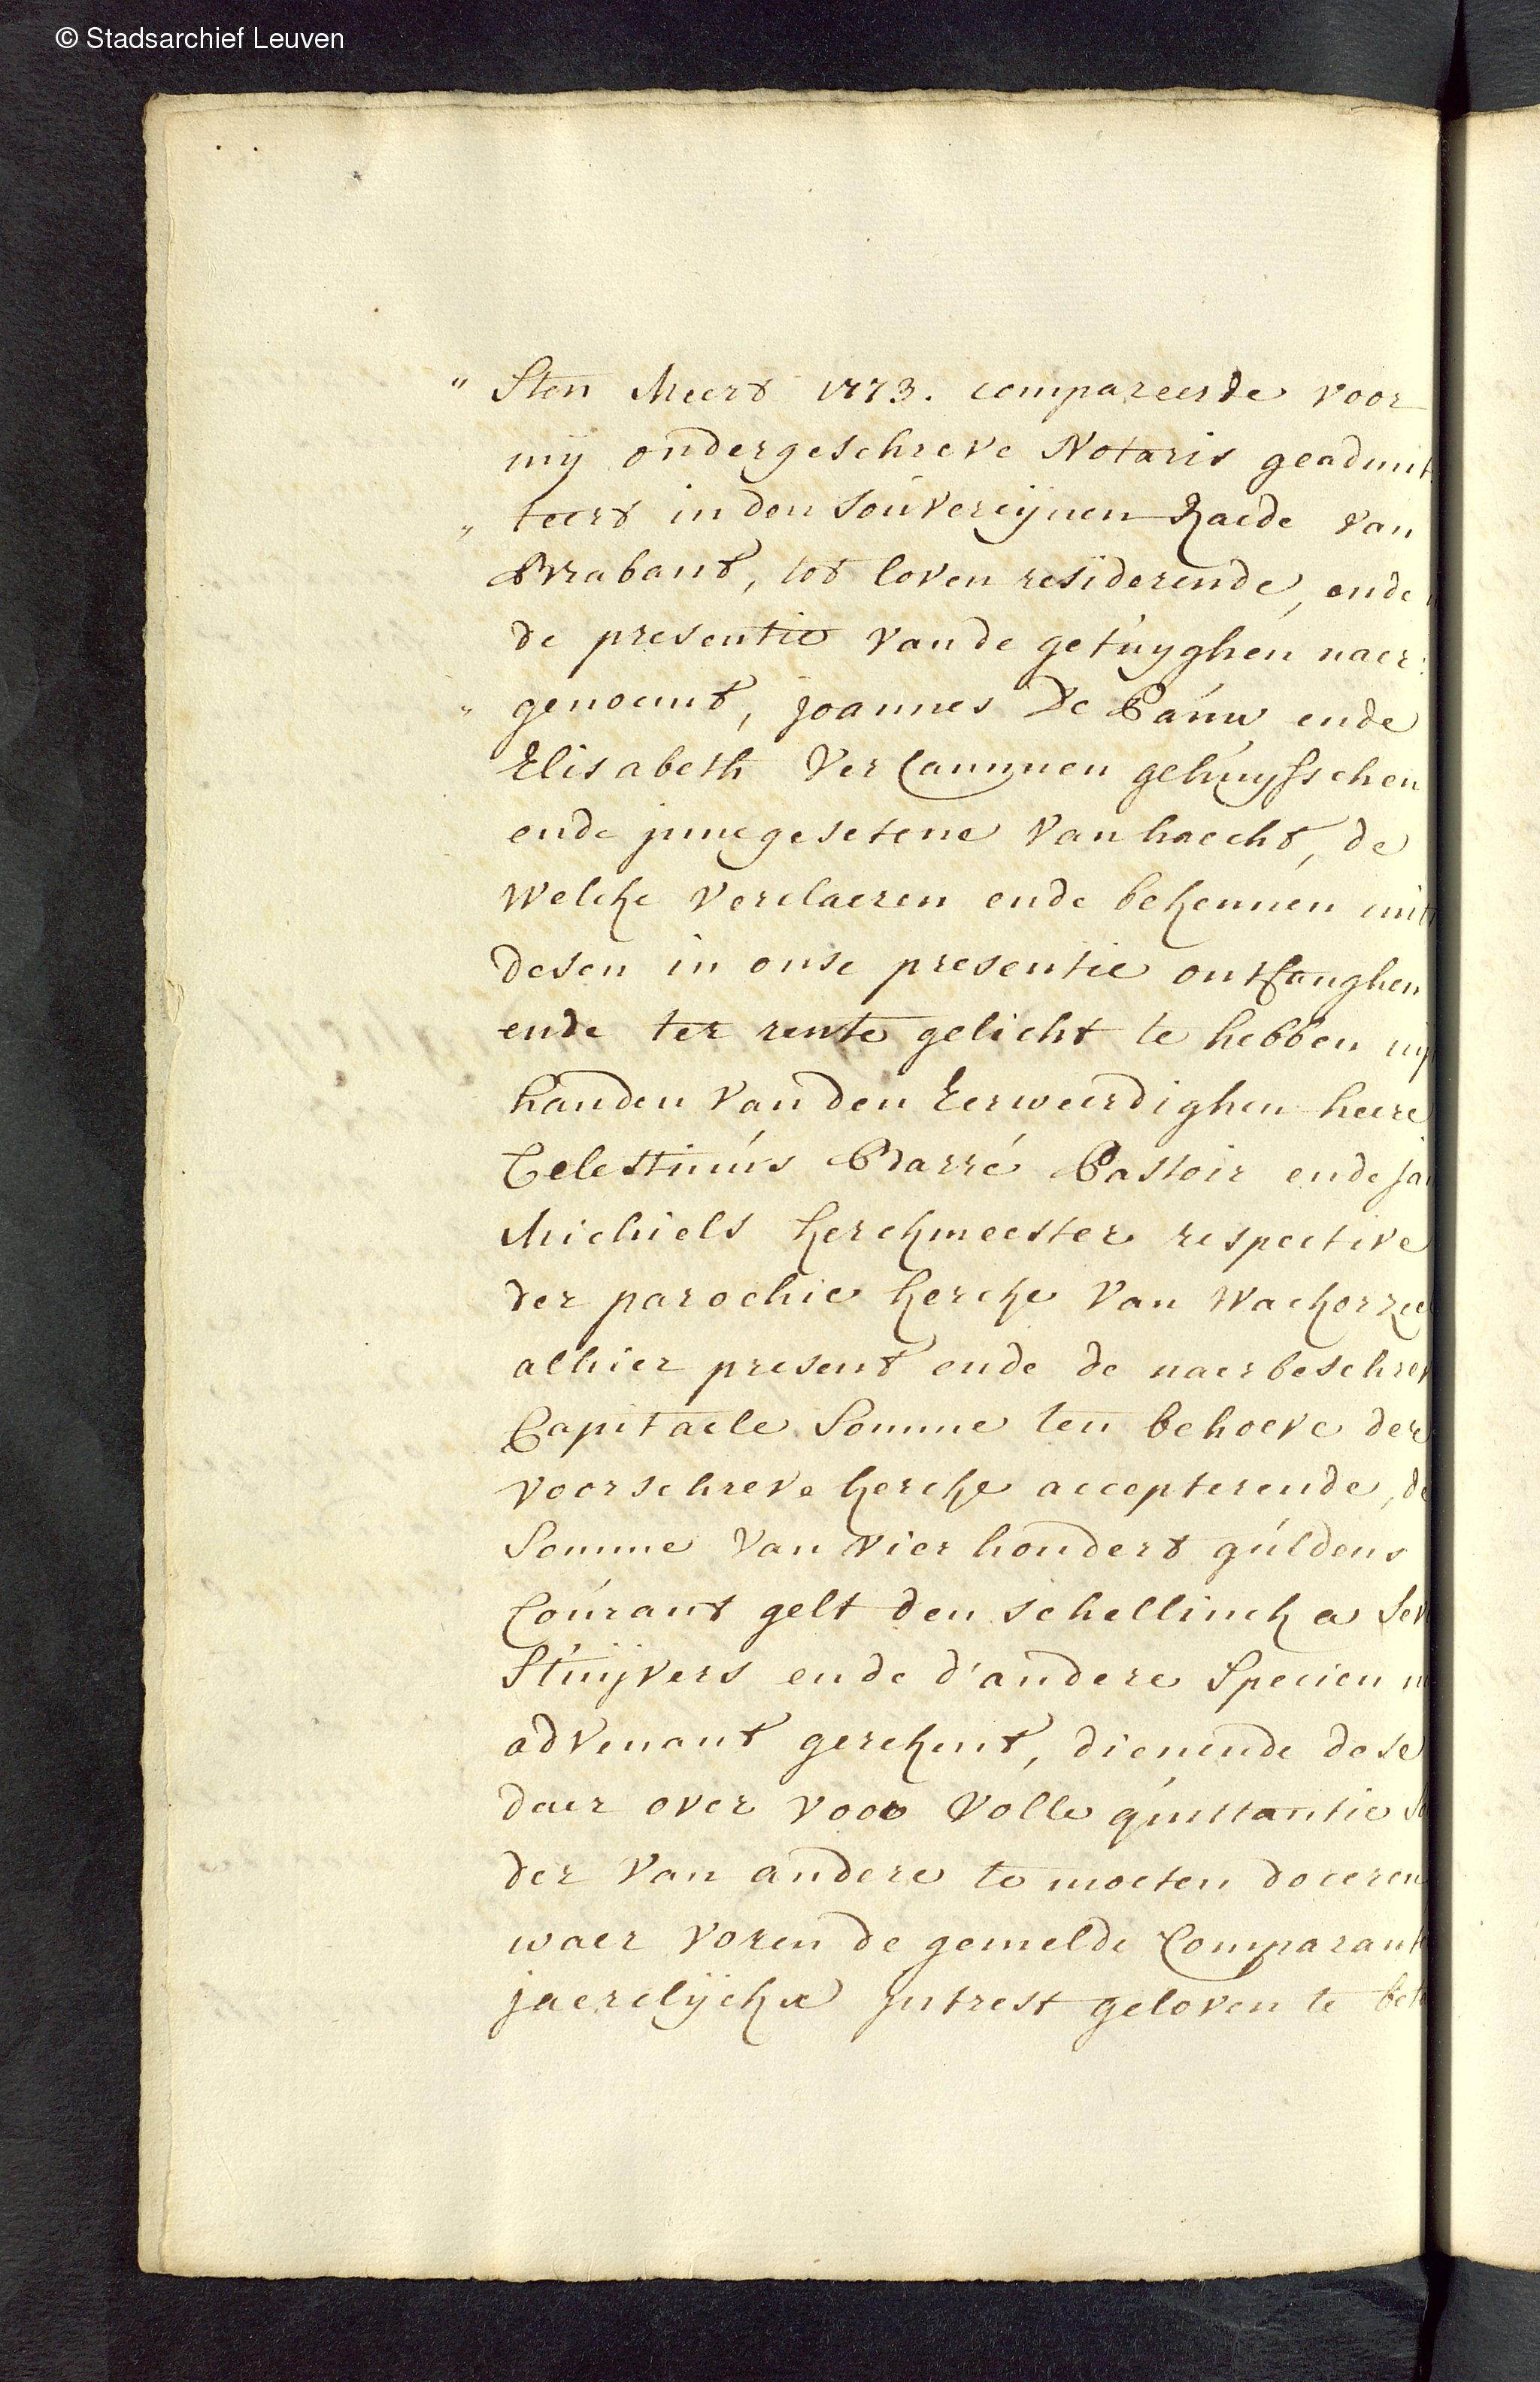 © Stadsarchief Leuven
" Sten Meert 1773. compareerde voor
mij ondergeschreve Notaris geadmit
„ teert in den souvereijnen Raede van
Brabant, tot loven residerende, ende
de presentie van de getuyghen naer:
„ genoemt, joannes De Pauw ende
Elisabeth Vercammen gehuysschen
ende jnnegesetene van haecht, de
welcke verclaeren ende bekennen mits
desen in onse presentie ontfanghen
ende ter rente gelicht te hebben uyt
handen van den Eerweerdighen heere
Celestinus Barré Pastoir ende jan
Michiels kerckmeester respective
der parochie kercke van Wackerzeel
alhier present ende de naerbeschreve
Capitaele Somme ten behoeve der
voorschreve kercke accepterende, de
Somme van vier hondert guldens
Courant gelt den schellinck a seve
Stuijvers ende d'andere Specien n
advenant gerekent, dienende dese
daer over voor volle quittantie
der van andere te moeten doceren
waer voren de gemelde Comparante
jaerelijckx jntrest geloven te bet